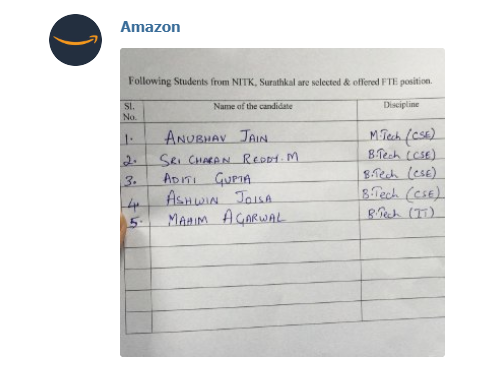 Amazon
Following Students from NITK, Surathkal are selected & offered FTE position.
Sl. No. Name of the candidate Discipline
1. ANUBHAV JAIN M.Tech (CSE)
2. SRI CHARAN REDDY.M B.Tech (CSE)
3. ADITI GUPTA B.Tech (CSE)
4. ASHWIN JOISA B.Tech (CSE)
5. MAHIM AGARWAL B.Tech (IT)